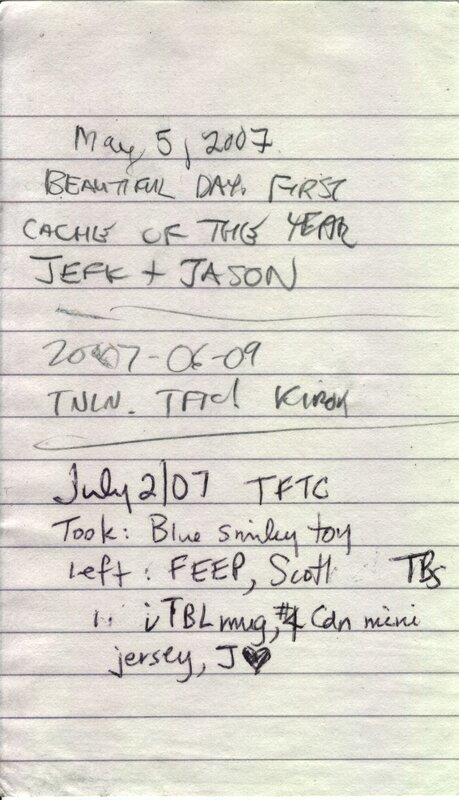 May 5, 2007
BEAUTIFUL DAY. FIRST
CACHE OF THE YEAR
JEFK + JASON
2007-06-09
TNLN. TFTC!
July 2/07 TFTC
Took: Blue smiley toy
Left: FEEP, Scott TBs
TBL mug, #4 Cdn mini
jersey, J♥